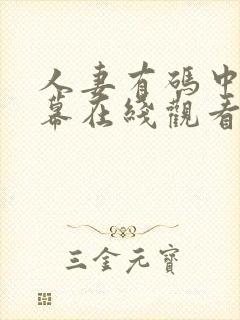 人妻有碼中
幕在綫觀看
三金元寶